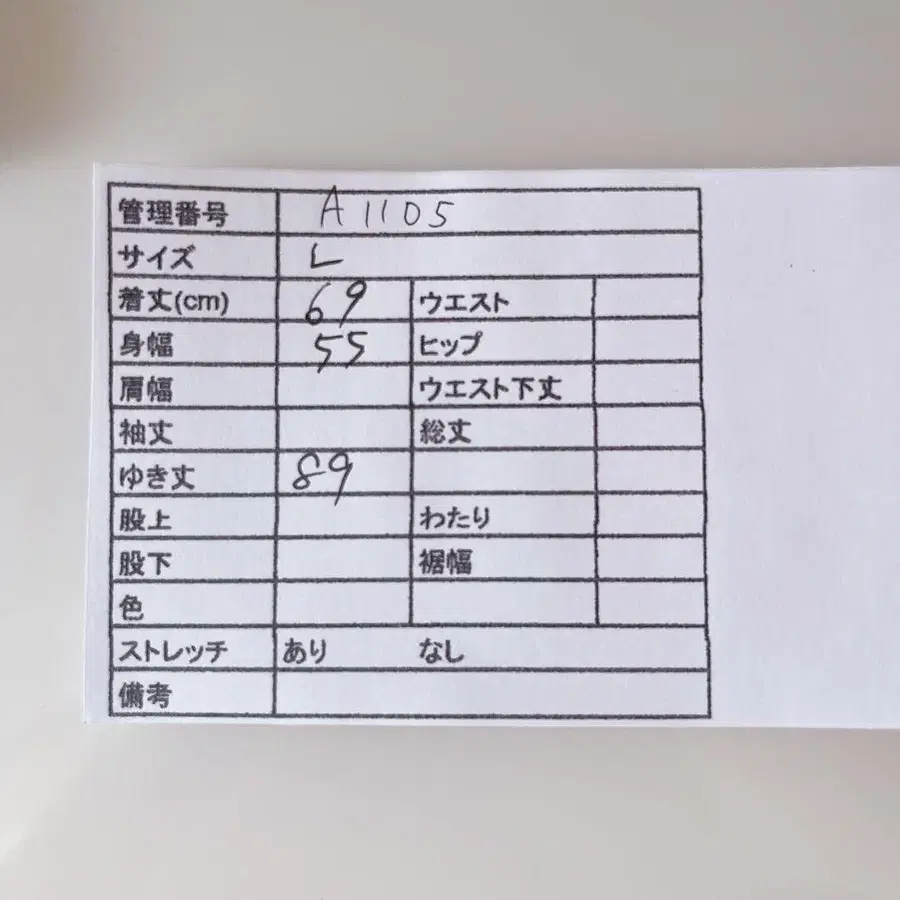 管理番号 A1105
サイズ L
着丈(cm) 69 ウエスト
身幅 55 ヒップ
肩幅 ウエスト下丈
袖丈 総丈
ゆき丈 89
股上 わたり
股下 裾幅
色
ストレッチ あり なし
備考